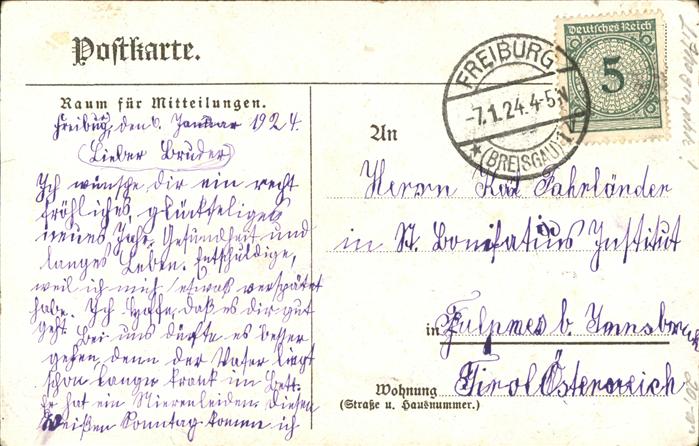 Postkarte.
Deutsches Reich
5
FREIBURG
-7.1.24.4-5N
(BREISGAU)
Raum für Mitteilungen.
Freiburg, den 6. Januar 1924.
Lieber Bruder
Ich wünsche dir ein recht
fröhliches, glückseliges
neues Jahr. Gesundheit und
langes Leben. Entschuldige,
weil ich mich etwas verspätet
habe. Ich hoffe, daß es dir gut
geht. Bei uns dürfte es besser
gehen, denn der Vater liegt
schon langer krank im Bett.
Er hat ein Nierenleiden. Diesen
weißen Sonntag komme ich
An
Herrn Karl Fahrländer
in St. Bonifatius Institut
in Fulpmes b. Innsbruck
Wohnung Tirol Österreich
(Straße u. Hausnummer.)